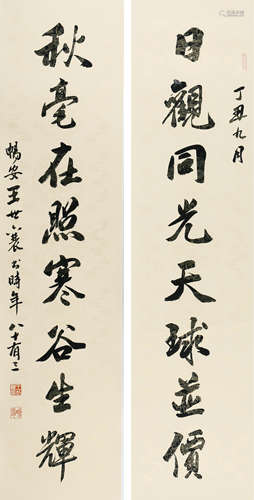 丁丑九月
日觀同光天球並價
秋毫在照寒谷生輝
暢安王世襄書時年八十有三